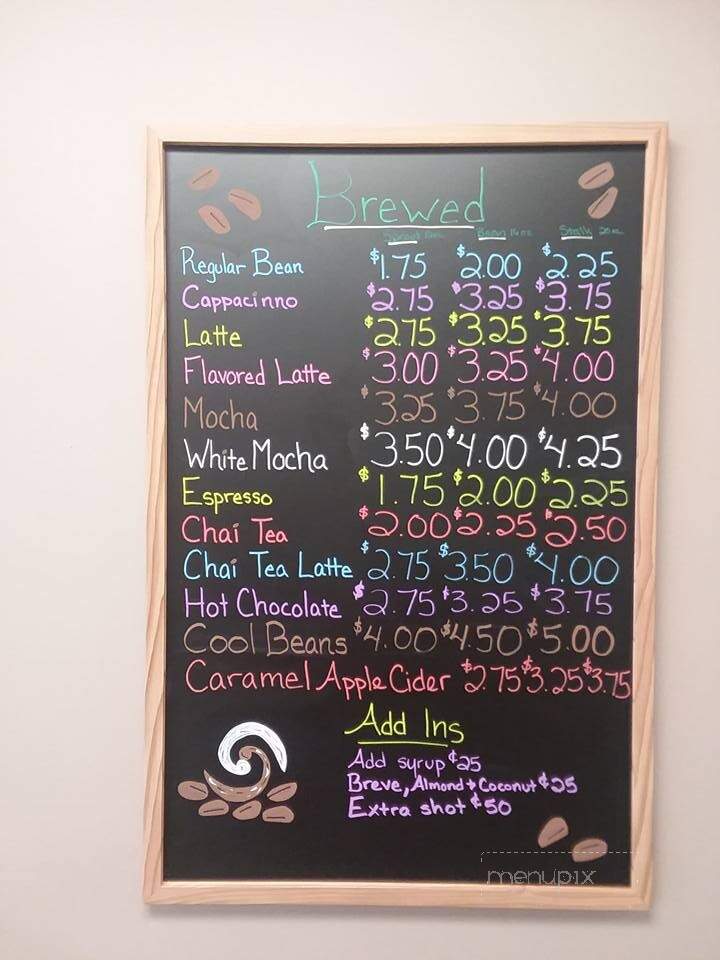 Brewed
Sprout Bean 16 oz Stalk 20 oz
Regular Bean $1.75 $2.00 $2.25
Cappacinno $2.75 $3.25 $3.75
Latte $2.75 $3.25 $3.75
Flavored Latte $3.00 $3.25 $4.00
Mocha $3.25 $3.75 $4.00
White Mocha $3.50 $4.00 $4.25
Espresso $1.75 $2.00 $2.25
Chai Tea $2.00 $2.25 $2.50
Chai Tea Latte $2.75 $3.50 $4.00
Hot Chocolate $2.75 $3.25 $3.75
Cool Beans $4.00 $4.50 $5.00
Caramel Apple Cider $2.75 $3.25 $3.75
Add Ins
Add syrup ¢25
Breve, Almond + Coconut ¢25
Extra shot ¢50
menupix